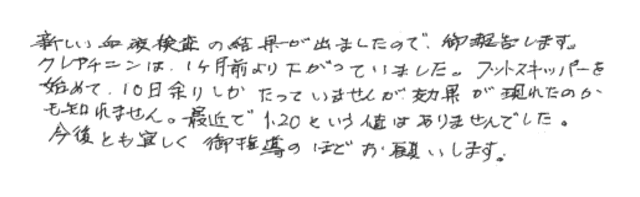 新しい血液検査の結果が出ましたので、御報告します。
クレアチニンは、1ヶ月前より下がっていました。フットスキッパーを
始めて、10日余りしか たっていませんが、効果が現れたのか
も知れません。最近で1.20という値はありませんでした。
今後とも宜しく 御指導のほどお願いします。